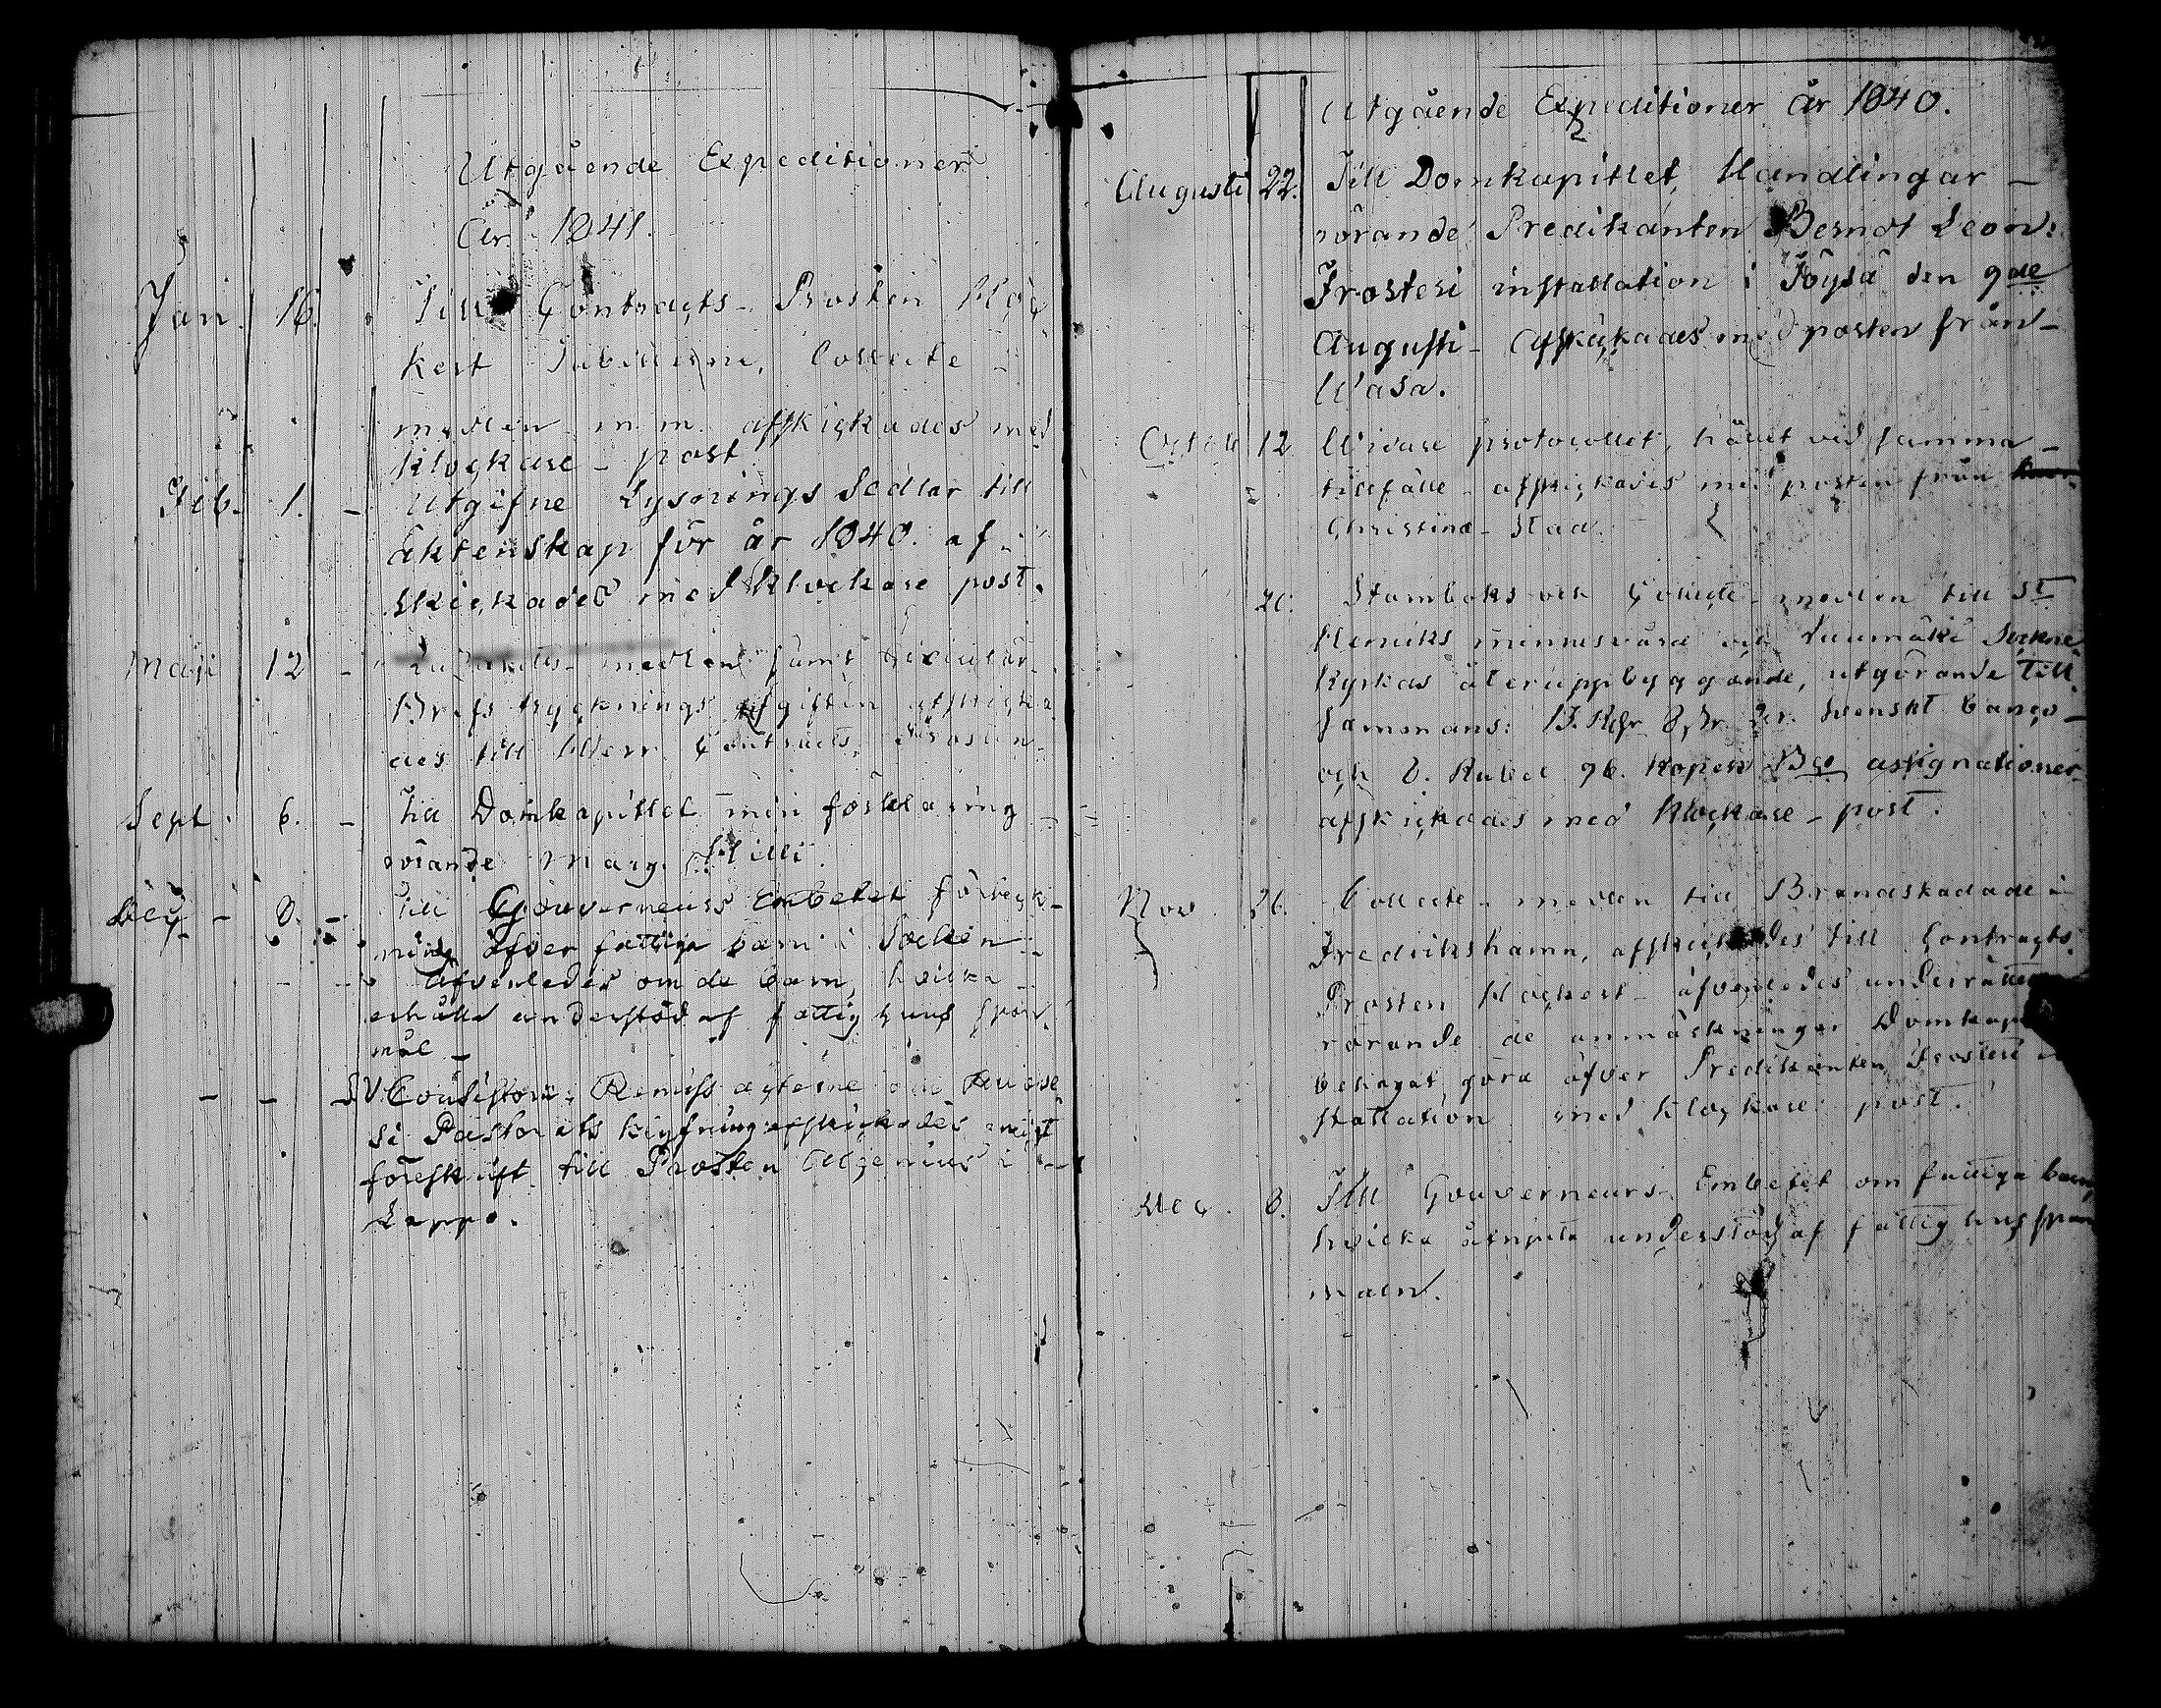 Utgående Expeditioner
År 1841.
Jan. 16. Till Contracts-Prosten Hoc-
kert Tabellerne, Collecte-
medlen m. m. afskickades med
Klockare-post
Feb. 1. - Utgifne Lysnings Sedlar till
Äktenskap för år 1840. af-
skickades med Klockare post.
Maji 12 - medlen samt Circulär
Brefs trycknings afgiften afskicka
des till Herr Contracts Prosten
Sept. 6. - Till Domkapitlet min förklaring
rörande Marg.
Dec - 8. - Till Gouverneurs Embetet förteck-
ning öfver fattiga barn i Socken -
- - - äfvenledes om de barn, hvilka -
erhålla understöd af fattighus span-
mål -
- - - Consistorii Remiss acterne om
si Pastorats klyfning afskickades enligt
föreskrift till Prosten Alcenius i -
Lappo.
Utgående Expeditioner år 1840.
Augusti 22. Till Domkapitlet, Handlingar -
rörande Predikanten Berndt Leon:
Frosteri installation i Töysä den 9de
Augusti - Afskickades med posten från -
Wasa.
Octob 12 Vidare protocollet, hållit vid samma -
tillfälle - afskickades med posten från
Christinæ-Stad.
Stamboks och Collecte-medlen till St
Henriks minnesvård och Luumäki Sockne
Kyrkas återuppbyggande, utgörande till
sammans: 13. Rdr 8 sk. 2 r. Svenskt banco -
och 8. Rubel 96. Kopek Bco assignationer
afskickades med Klockare-post.
Nov. 26. Collecte-medlen till Brandskadade i
Fredrikshamn, afskickades till Contracts
Prosten Hockert - äfvenledes underrättelse
rörande de anmärkningar Domkap
behagat göra öfver Predikanten Frosteri
stallation med klockare post.
Dec. 8. Till Gouverneurs Embetet om fattiga barn
hvilka åtnjuta understöd af fattighus span
malen.